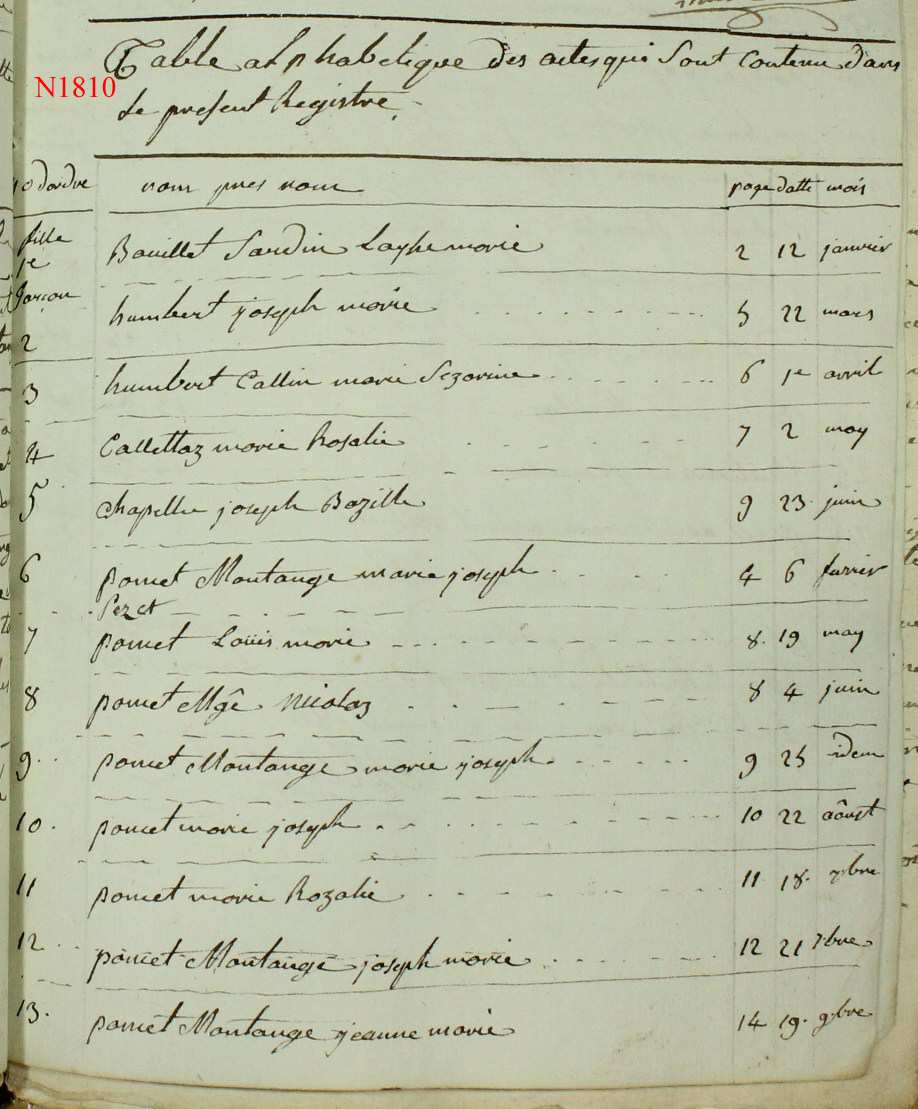 Table alphabetique des actes qui Sont Contenu dans
N1810
Le present Registre.
no d'ordre nom pres nom page datte mois
fille 1e Bouillet Sardin Marie 2 12 janvier
garçon 2 humbert joseph marie 5 22 mars
3 humbert Callin marie Sezarine 6 1e avril
4 Callettaz marie Rosalie 7 2 may
5 Chapelle joseph Bazille 9 23 juin
6 poncet Montange marie joseph 4 6 fevrier
Pezet
7 poncet Louis marie 8 19 may
8 poncet Mge Nicolas 8 4 juin
9 poncet Montange marie joseph 9 25 idem
10 poncet marie joseph 10 22 aôust
11 poncet marie Rozalie 11 18 7bre
12 poncet Montange joseph marie 12 21 7bre
13 poncet Montange jeanne marie 14 19 9bre